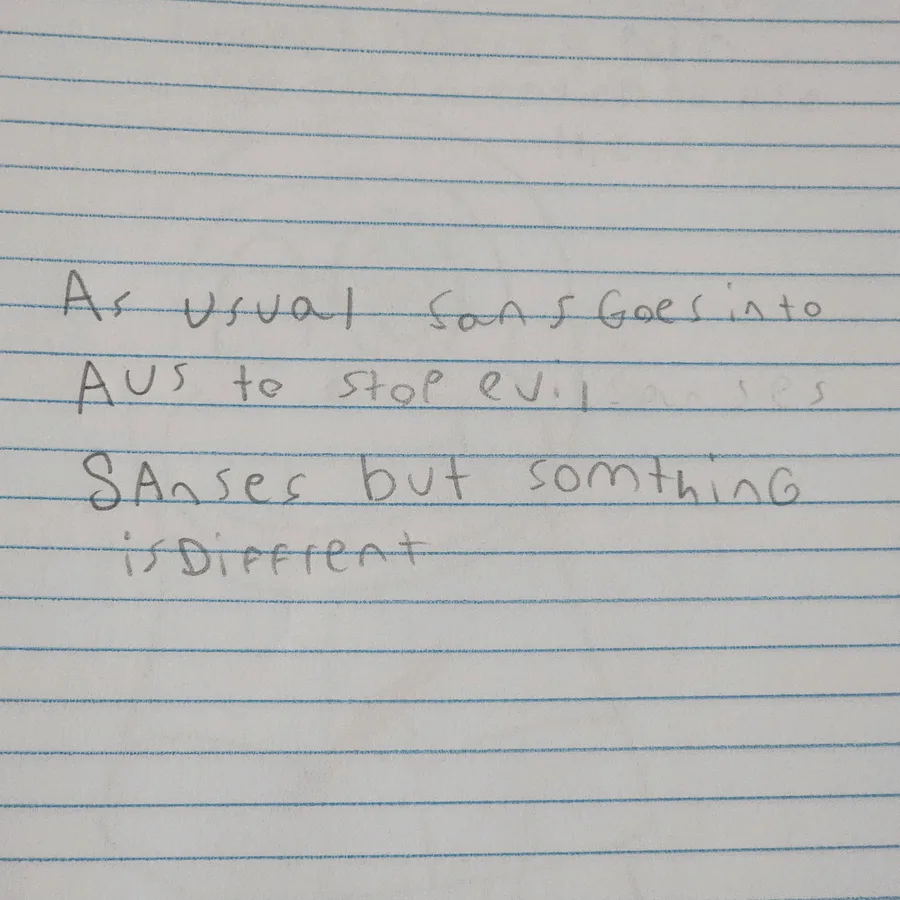 As usual sans Goes into
AUS to stop evil
SAnses but somthinG
is DiFFrent